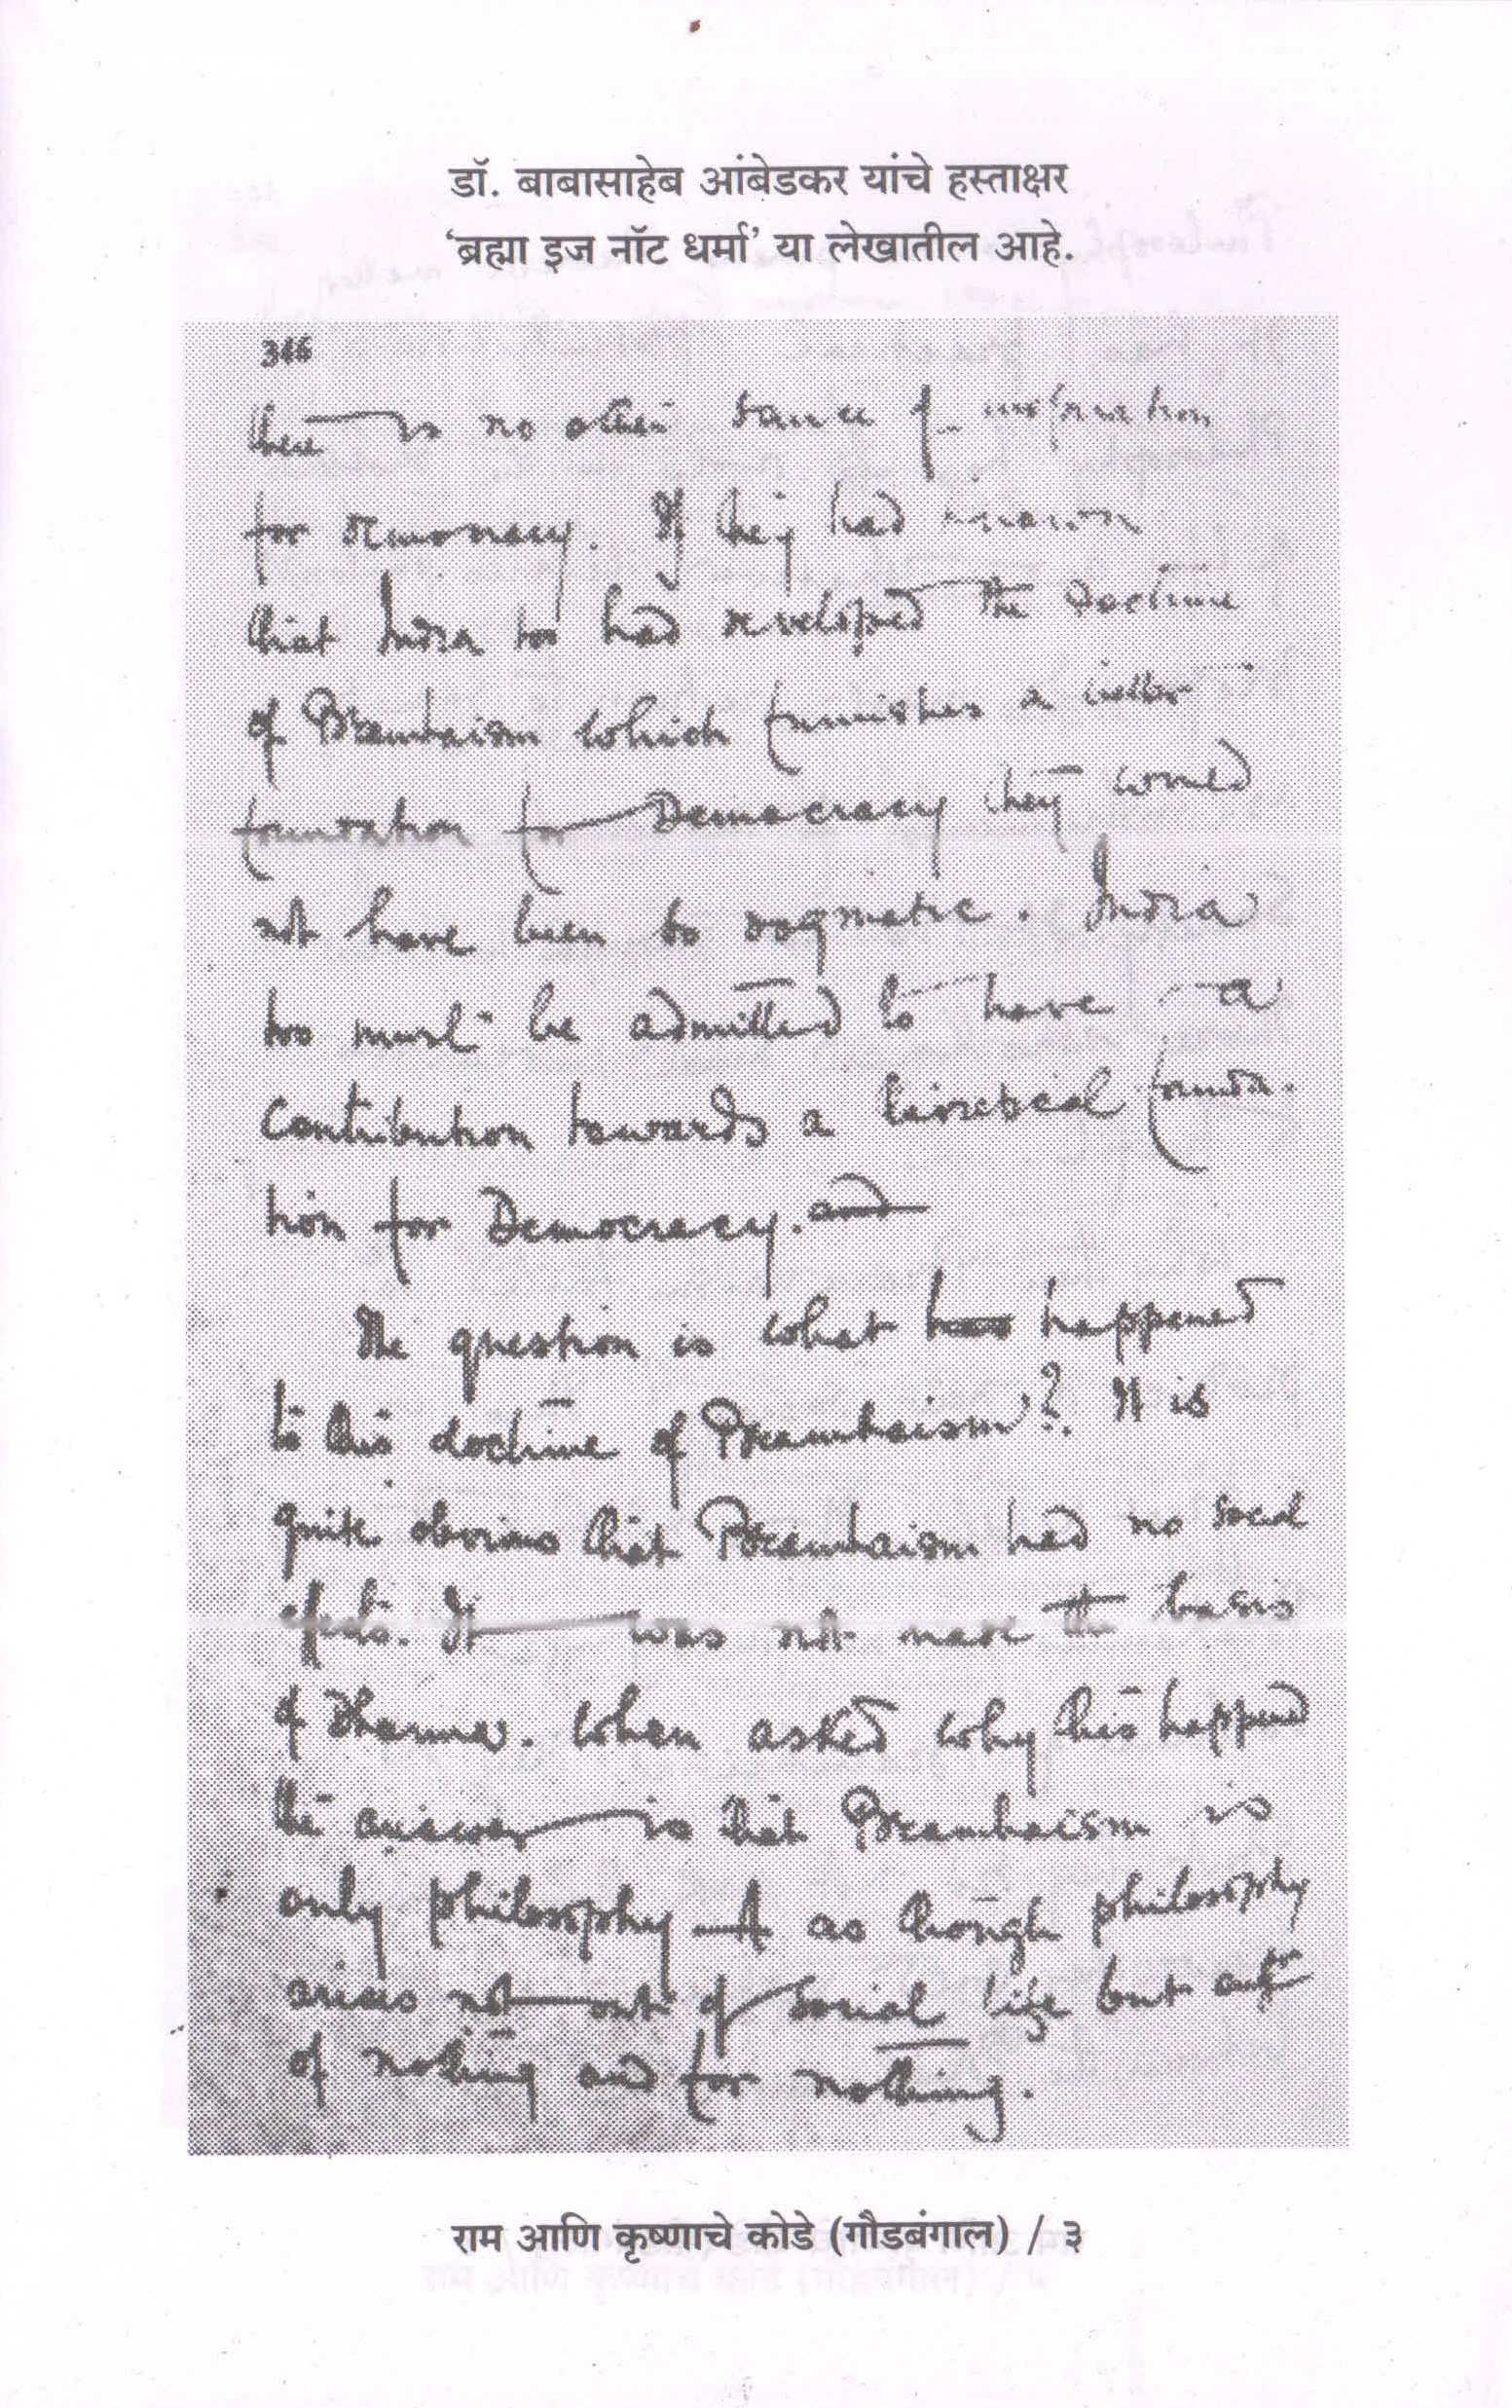 डॉ. बाबासाहेब आंबेडकर यांचे हस्ताक्षर
‘ब्रह्मा इज नॉट धर्मा’ या लेखातील आहे.
346
there is no other source of inspiration
for democracy. If they had known
that India too had developed the doctrine
of Bramhaism which furnishes a better
foundation for Democracy they would
not have been so dogmatic. India
too must be admitted to have a
contribution towards a theoretical founda-
tion for Democracy. and
The question is what has happened
to this doctrine of Bramhaism? It is
quite obvious that Bramhaism had no social
effects. It was not made the basis
of Dharma. When asked why this happened
the answer is that Bramhaism is
only philosophy as though philosophy
arises not out of social life but out
of nothing and for nothing.
राम आणि कृष्णाचे कोडे (गौडबंगाल) / ३